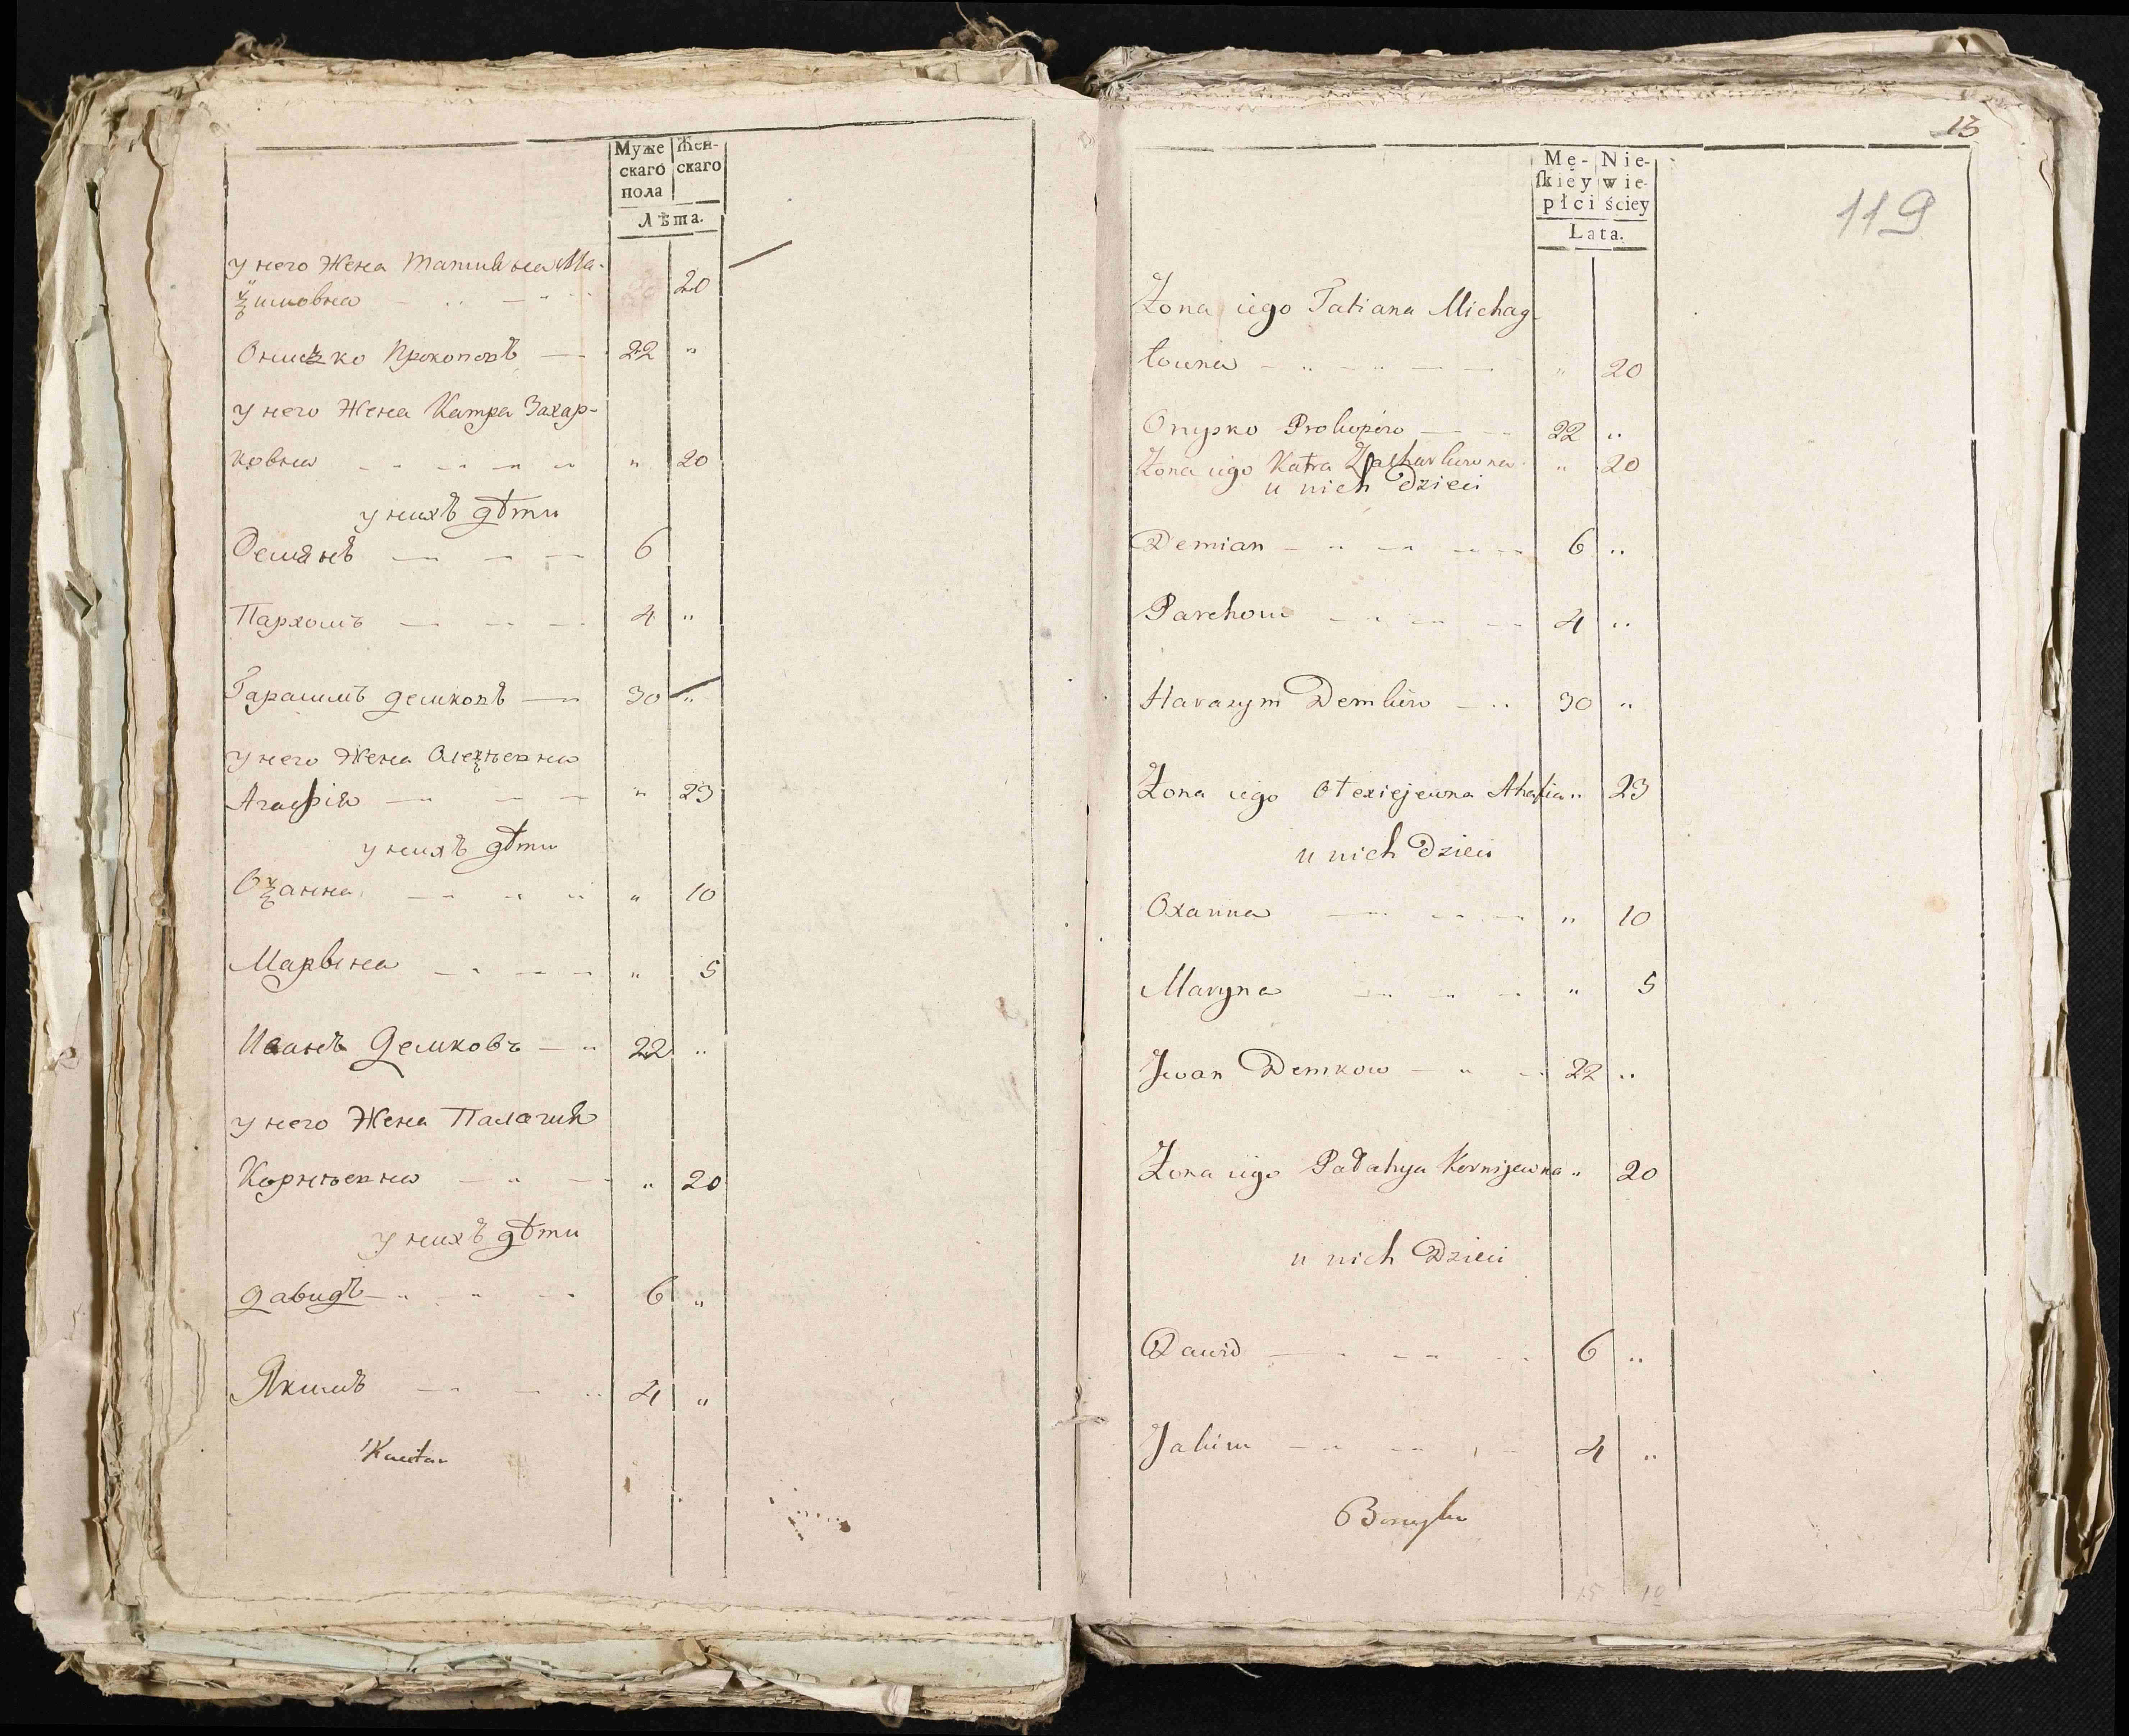 Муже
скаго
пола
Жен-
скаго
Лѣта.
у него Жена Татияна Ма-
ѯимовна 20
Онишко Прокоповъ 22 "
у него Жена Катра Захар-
ковна " 20
у нихъ дѣти
Демянъ 6
Пархомъ 4 "
Гарасимъ демковъ 30 "
у него Жена Олеѯѣевна
Агафія " 23
у нихъ дѣти
Оѯанна " 10
Марвина " 5
Иванъ Демковъ 22 "
у него Жена Палагия
Корнѣевна " 20
у нихъ дѣти
давидъ 6 "
Якимъ 4 "
13
119
Mę-
skiey
płci
Nie-
wie-
ściey
Lata.
Żona iego Tatiana Michay-
łowna " 20
Onysko Prokopów 22 "
Żona iego Katra Zacharkowna " 20
u nich Dzieci
Demian 6 "
Parchom 4 "
Harasym Demków 30 "
Żona iego Olexiejewna Ahafia " 23
u nich Dzieci
Oxanna " 10
Maryna " 5
Jwan Demkow 22 "
Żona iego Pałahya Kornijewna " 20
u nich Dzieci
Dawid 6 "
Jakim 4 "
15 10